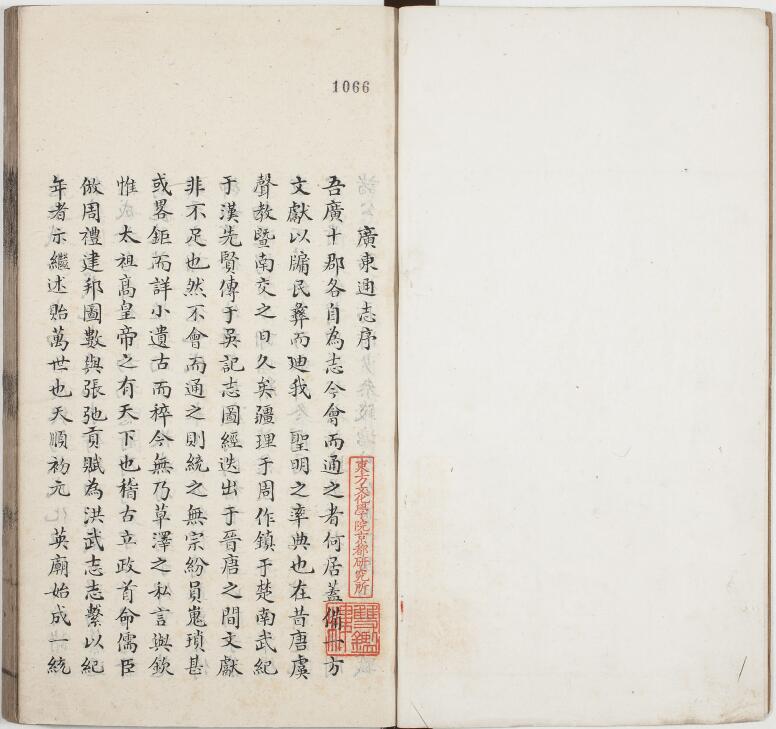 1066
廣東通志序
吾廣十郡各自為志今會而通之者何居蓋備一方
文獻以牖民彝而迪我 聖明之率典也在昔唐虞
聲教暨南交之日久矣疆理于周作鎮于楚南武紀
于漢先賢傳于吳記志圖經迭出于晉唐之間文獻
非不足也然不會而通之則統之無宗紛員嵬瑣甚
或畧鉅而詳小遺古而稡今無乃草澤之私言與欽
惟 太祖高皇帝之有天下也稽古立政首命儒臣
倣周禮建邦圖數與張弛貢賦為洪武志志繫以紀
年者示繼述貽萬世也天順初元 英廟始成一統
東方文化學院京都研究所